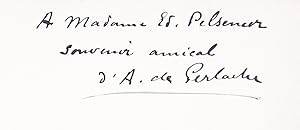 A Madame Ed. Pelseneer
souvenir amical
d'A. de Gerlache